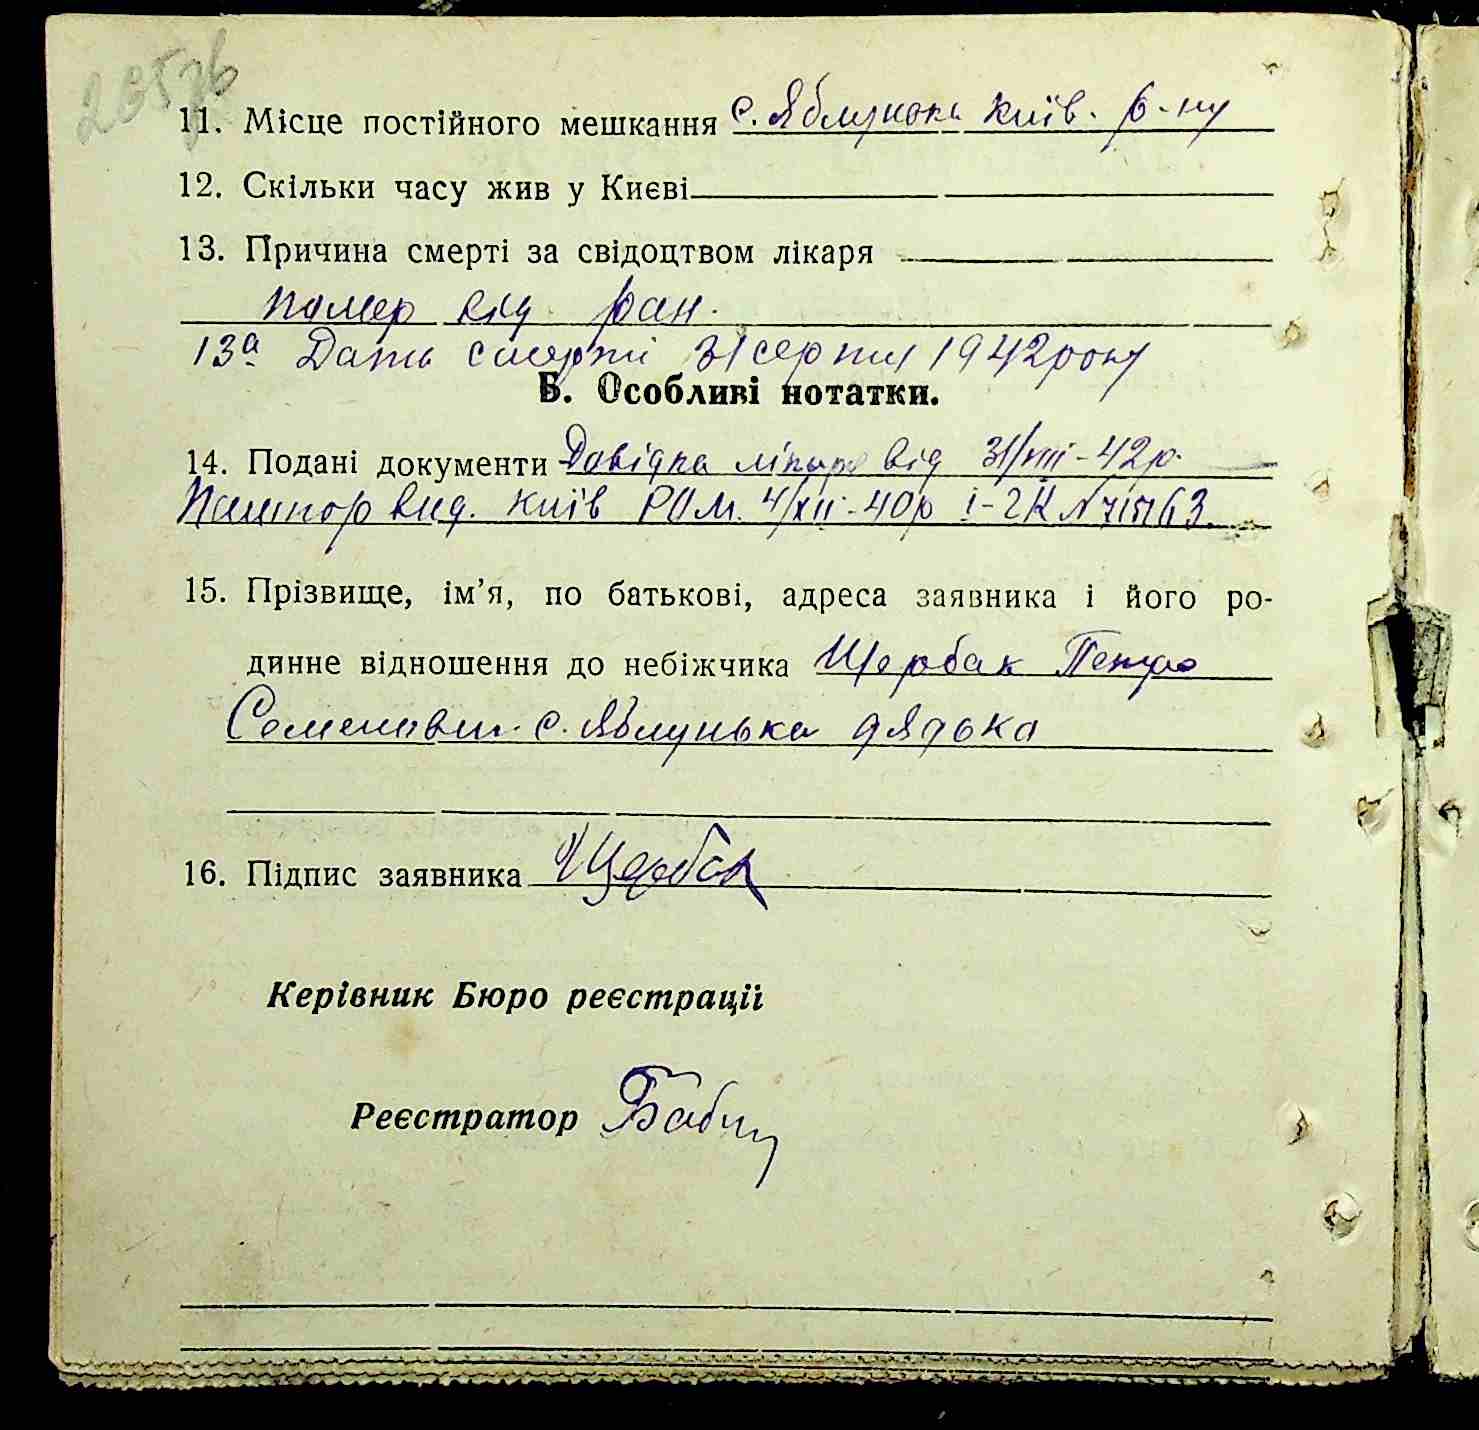 11. Місце постійного мешкання с. Яблунька Київ. р-ну
12. Скільки часу жив у Києві
13. Причина смерті за свідоцтвом лікаря
помер від ран.
13а Дата смерті 31 серпня 1942 року
Б. Особливі нотатки.
14. Подані документи Довідка лікаря від 31/VIII-42р.
Пашпор вид. Київ РОМ. 4/XII-40р І-ГК N
15. Прізвище, ім’я, по батькові, адреса заявника і його ро-
динне відношення до небіжчика Щербак Петро
Семенович с. Яблунька дядька
16. Підпис заявника Щербак
Керівник Бюро реєстрації
Реєстратор